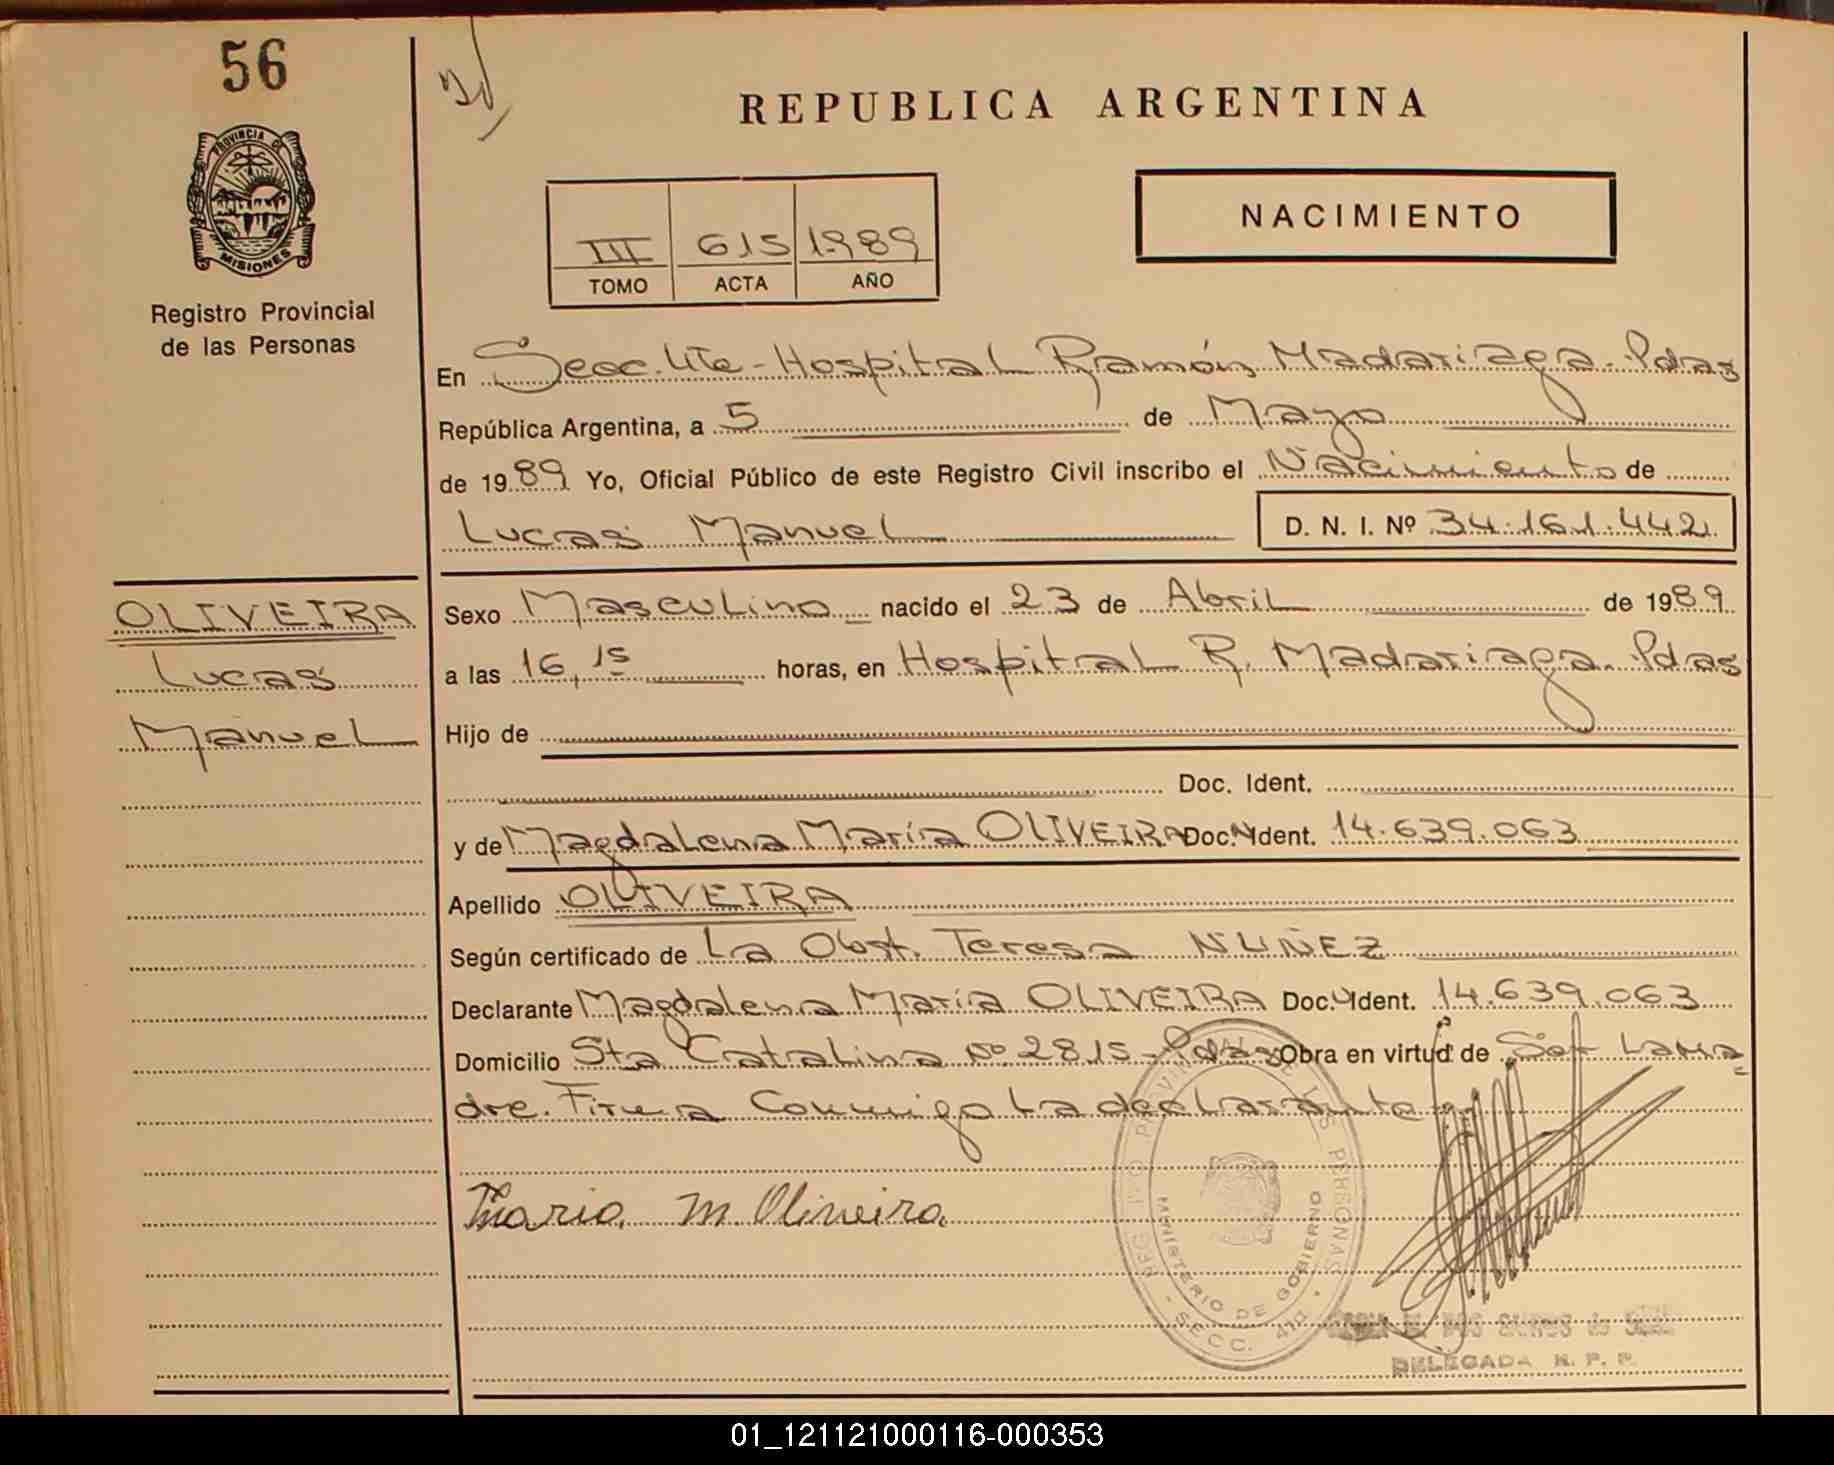 56
REPUBLICA ARGENTINA
PROVINCIA DE
MISIONES
Registro Provincial
de las Personas
NACIMIENTO
III 615 1989
TOMO ACTA AÑO
En Secc. 4ta - Hospital Ramón Madariaga. Pdas
República Argentina, a 5 de Mayo
de 1989 Yo, Oficial Público de este Registro Civil inscribo el Nacimiento de
Lucas Manuel D. N. I. Nº 34.161.442
OLIVEIRA
Lucas
Manuel
Sexo Masculino nacido el 23 de Abril de 1989
a las 16,15 horas, en Hospital R. Madariaga. Pdas
Hijo de
Doc. Ident.
y de Magdalena María OLIVEIRA Doc. Ident. 14.639.063
Apellido OLIVEIRA
Según certificado de La Obst. Teresa NUÑEZ
Declarante Magdalena María OLIVEIRA Doc. Ident. 14.639.063
Domicilio Sta Catalina Nº 2815 - Pdas Obra en virtud de Ser La Ma
dre. Firma Conmigo la declarante
Maria M. Oliveira
MINISTERIO DE GOBIERNO
PERSONAS
SECC.
DELEGADA R. P. P.
01_121121000116-000353